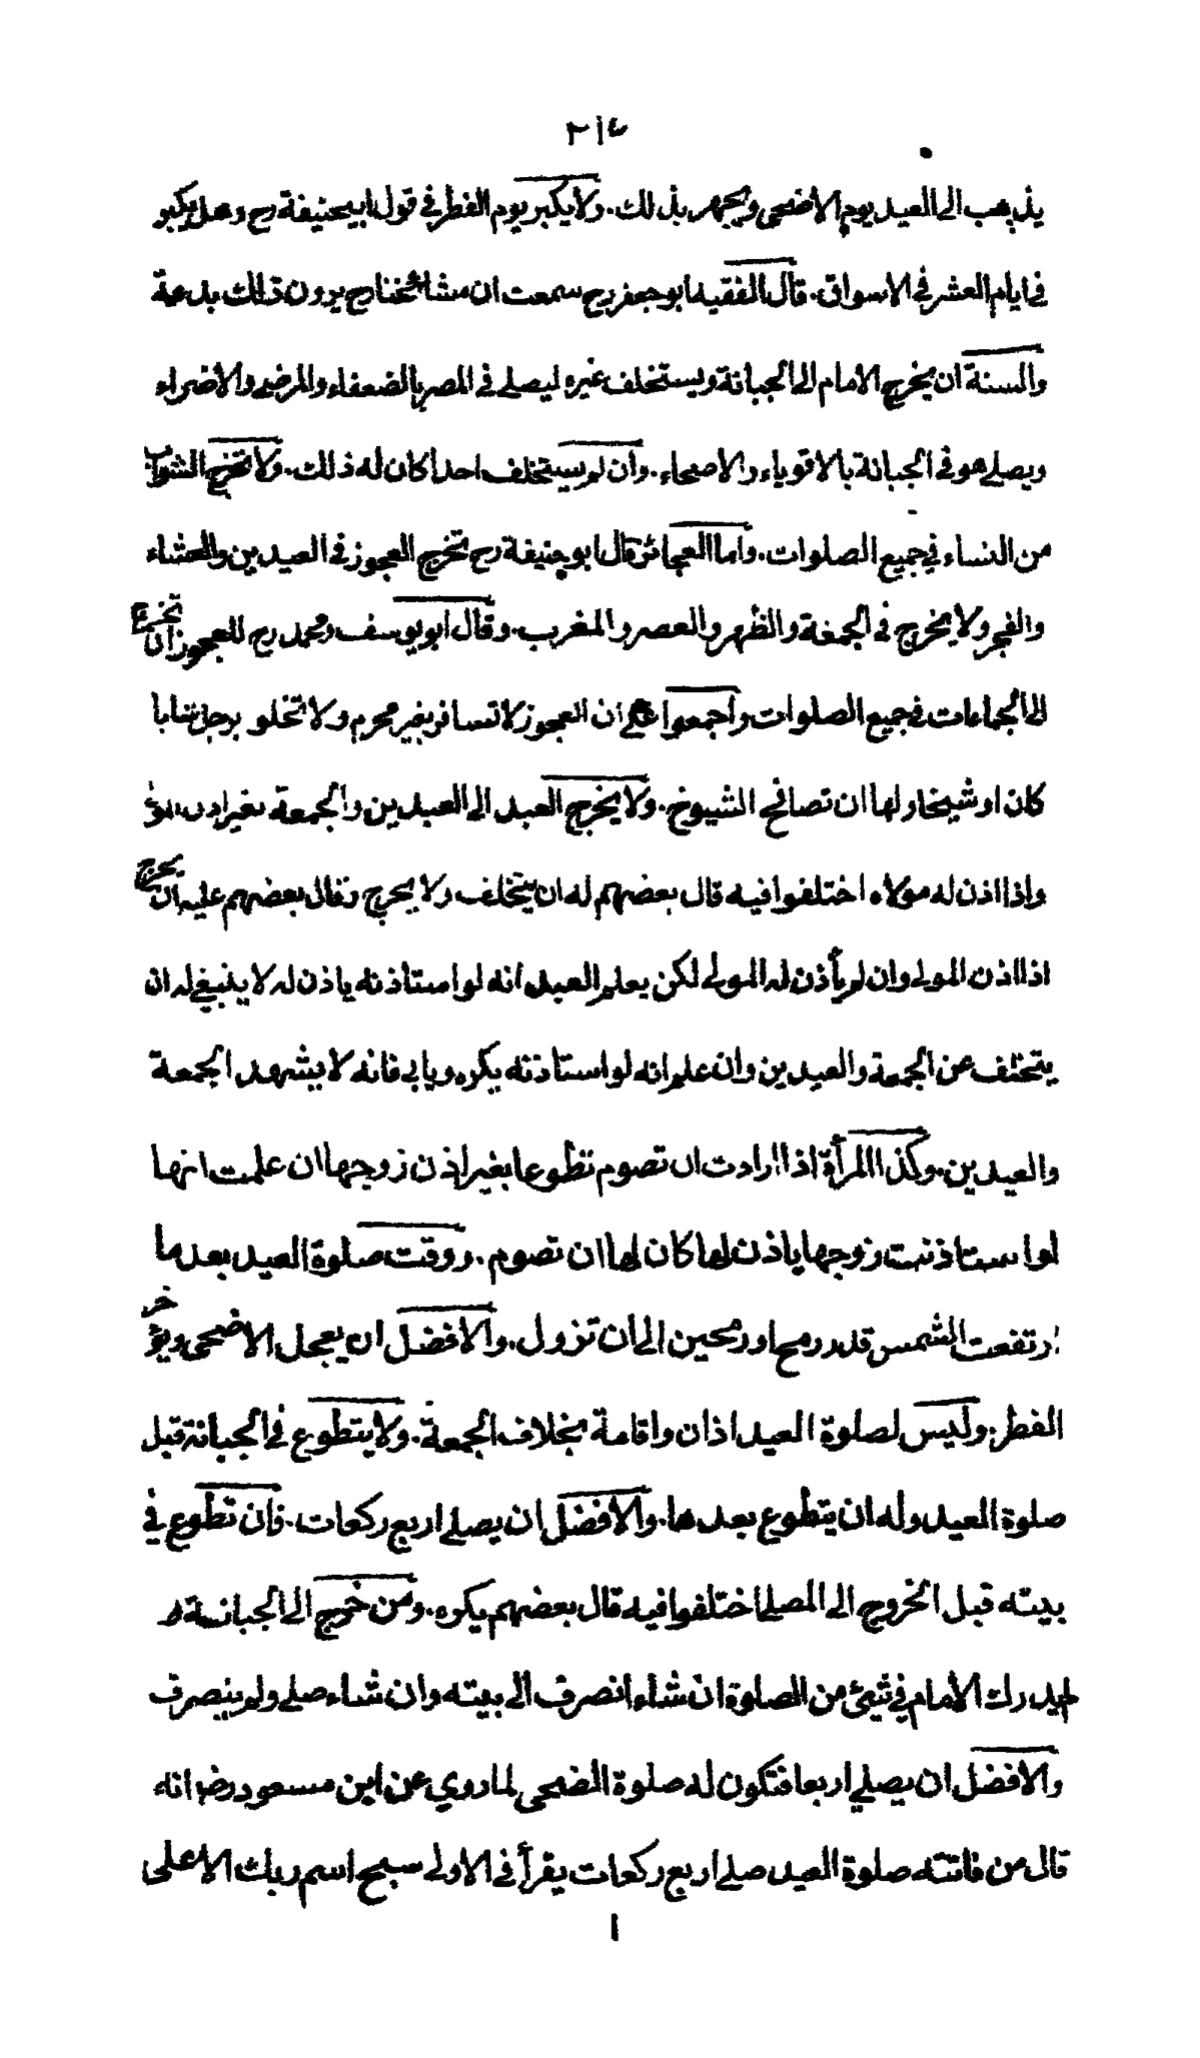 ٢١٤
يذهب الى العيد يوم الاضحى ويجهر بذلك . ولا يكبر يوم الفطر في قول ابيحنيفة رح وهل يكبر
في ايام العشر في الاسواق . قال الفقيه ابو جعفر رح سمعت ان مشائخنا رح يرون ذلك بدعة
والسنة ان يخرج الامام الى الجبانة ويستخلف غيره ليصلي في المصر بالضعفاء والمرضى والاضراء
ويصلي هو في الجبانة بالاقوياء والاصحاء . وان لم يستخلف احدا كان له ذلك . ولا تخرج الشواب
من النساء في جميع الصلوات . واما العجائز قال ابو حنيفة رح تخرج العجوز في العيدين والعشاء
والفجر ولا تخرج في الجمعة والظهر والعصر والمغرب . وقال ابو يوسف ومحمد رح للعجوز ان تخرج
الى الجماعات في جميع الصلوات واجمعوا على ان العجوز لا تسافر بغير محرم ولا تخلو برجل شابا
كان او شيخا ولها ان تصافح الشيوخ . ولا يخرج العبد الى العيدين والجمعة بغير اذن
واذا اذن له مولاه اختلفوا فيه قال بعضهم له ان يتخلف ولا يخرج وقال بعضهم عليه ان يخرج
اذا اذن المولى وان لم يأذن له المولى لكن يعلم العبد انه لو استأذنه يأذن له لا ينبغي له ان
يتخلف عن الجمعة والعيدين وان علم انه لو استأذنه يكره ويابى فانه لا يشهد الجمعة
والعيدين . وكذا المرأة اذا ارادت ان تصوم تطوعا بغير اذن زوجها ان علمت انها
لو استاذنت زوجها ياذن لها كان لها ان تصوم . ووقت صلوة العيد بعد ما
ارتفعت الشمس قدر رمح او رمحين الى ان تزول . والافضل ان يعجل الاضحى ويؤخر
الفطر . وليس لصلوة العيد اذان واقامة بخلاف الجمعة . ولا يتطوع في الجبانة قبل
صلوة العيد وله ان يتطوع بعدها . والافضل ان يصلي اربع ركعات . فان تطوع في
بيته قبل الخروج الى المصلى اختلفوا فيه قال بعضهم يكره . ومن خرج الى الجبانة و
لم يدرك الامام في شئ من الصلوة ان شاء انصرف الى بيته وان شاء صلى ولم ينصرف
والافضل ان يصلي اربعا فتكون له صلوة الضحى لما روي عن ابن مسعود رض انه
قال من فاتته صلوة العيد صلى اربع ركعات يقرأ في الاولى سبح اسم ربك الاعلى
ا